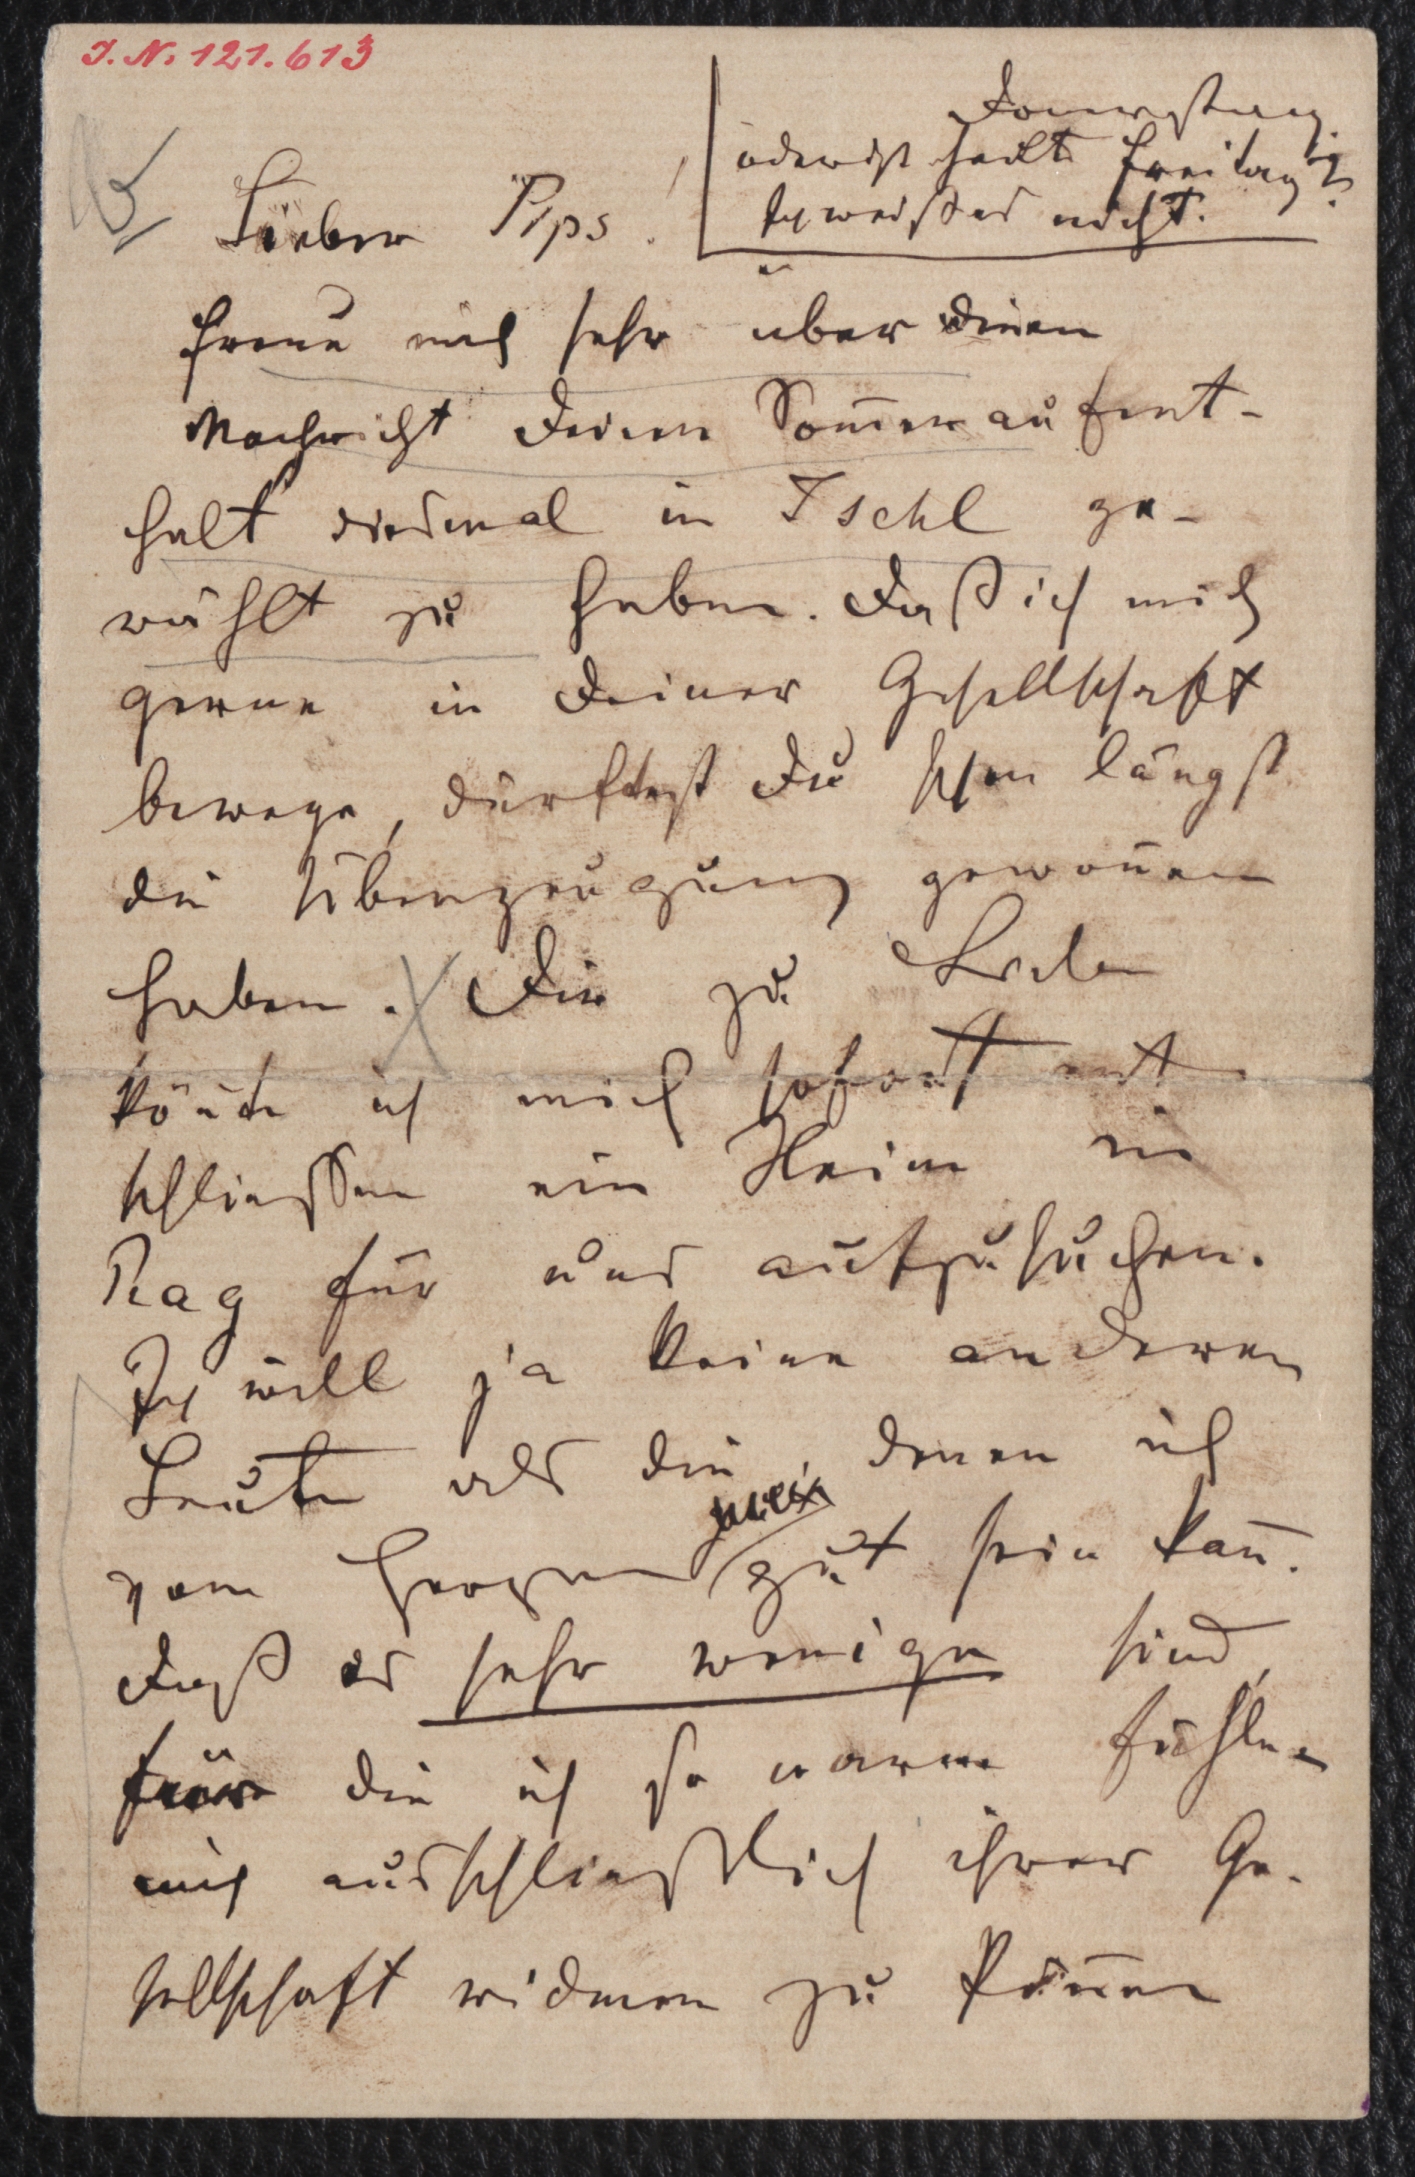 I. N. 121.613
Donnerstag.
oder ist heute Freitag?
Ich weiß es nicht.
Lieber Pips.
Freue mich sehr über deinen
Nachricht Deinen Som̅eraufent-
halt diesmal in Ischl ge-
wählt zu haben. Daß ich mich
gerne in Deiner Gesellschaft
bewege, dürftest Du schon längst
die Überzeugung gewon̅en
haben. Dir zu Liebe
kön̅te ich mich sofort ent
schließen ein Heim in
Rag für uns aufzusuchen.
Ich will ja keine anderen
Leute als die, denen ich
vom Herzen gut sein kan̅.
Daß es sehr wenige sind,
für die ich so warm fühle
mich ausschließlich ihrer Ge-
sellschaft widmen zu kön̅en